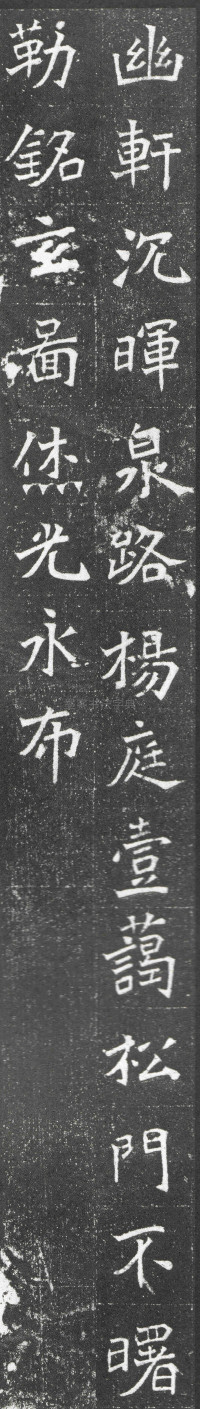 幽軒沉暉泉路楊庭壹藹松門不曙
勒銘玄啚烋光永布